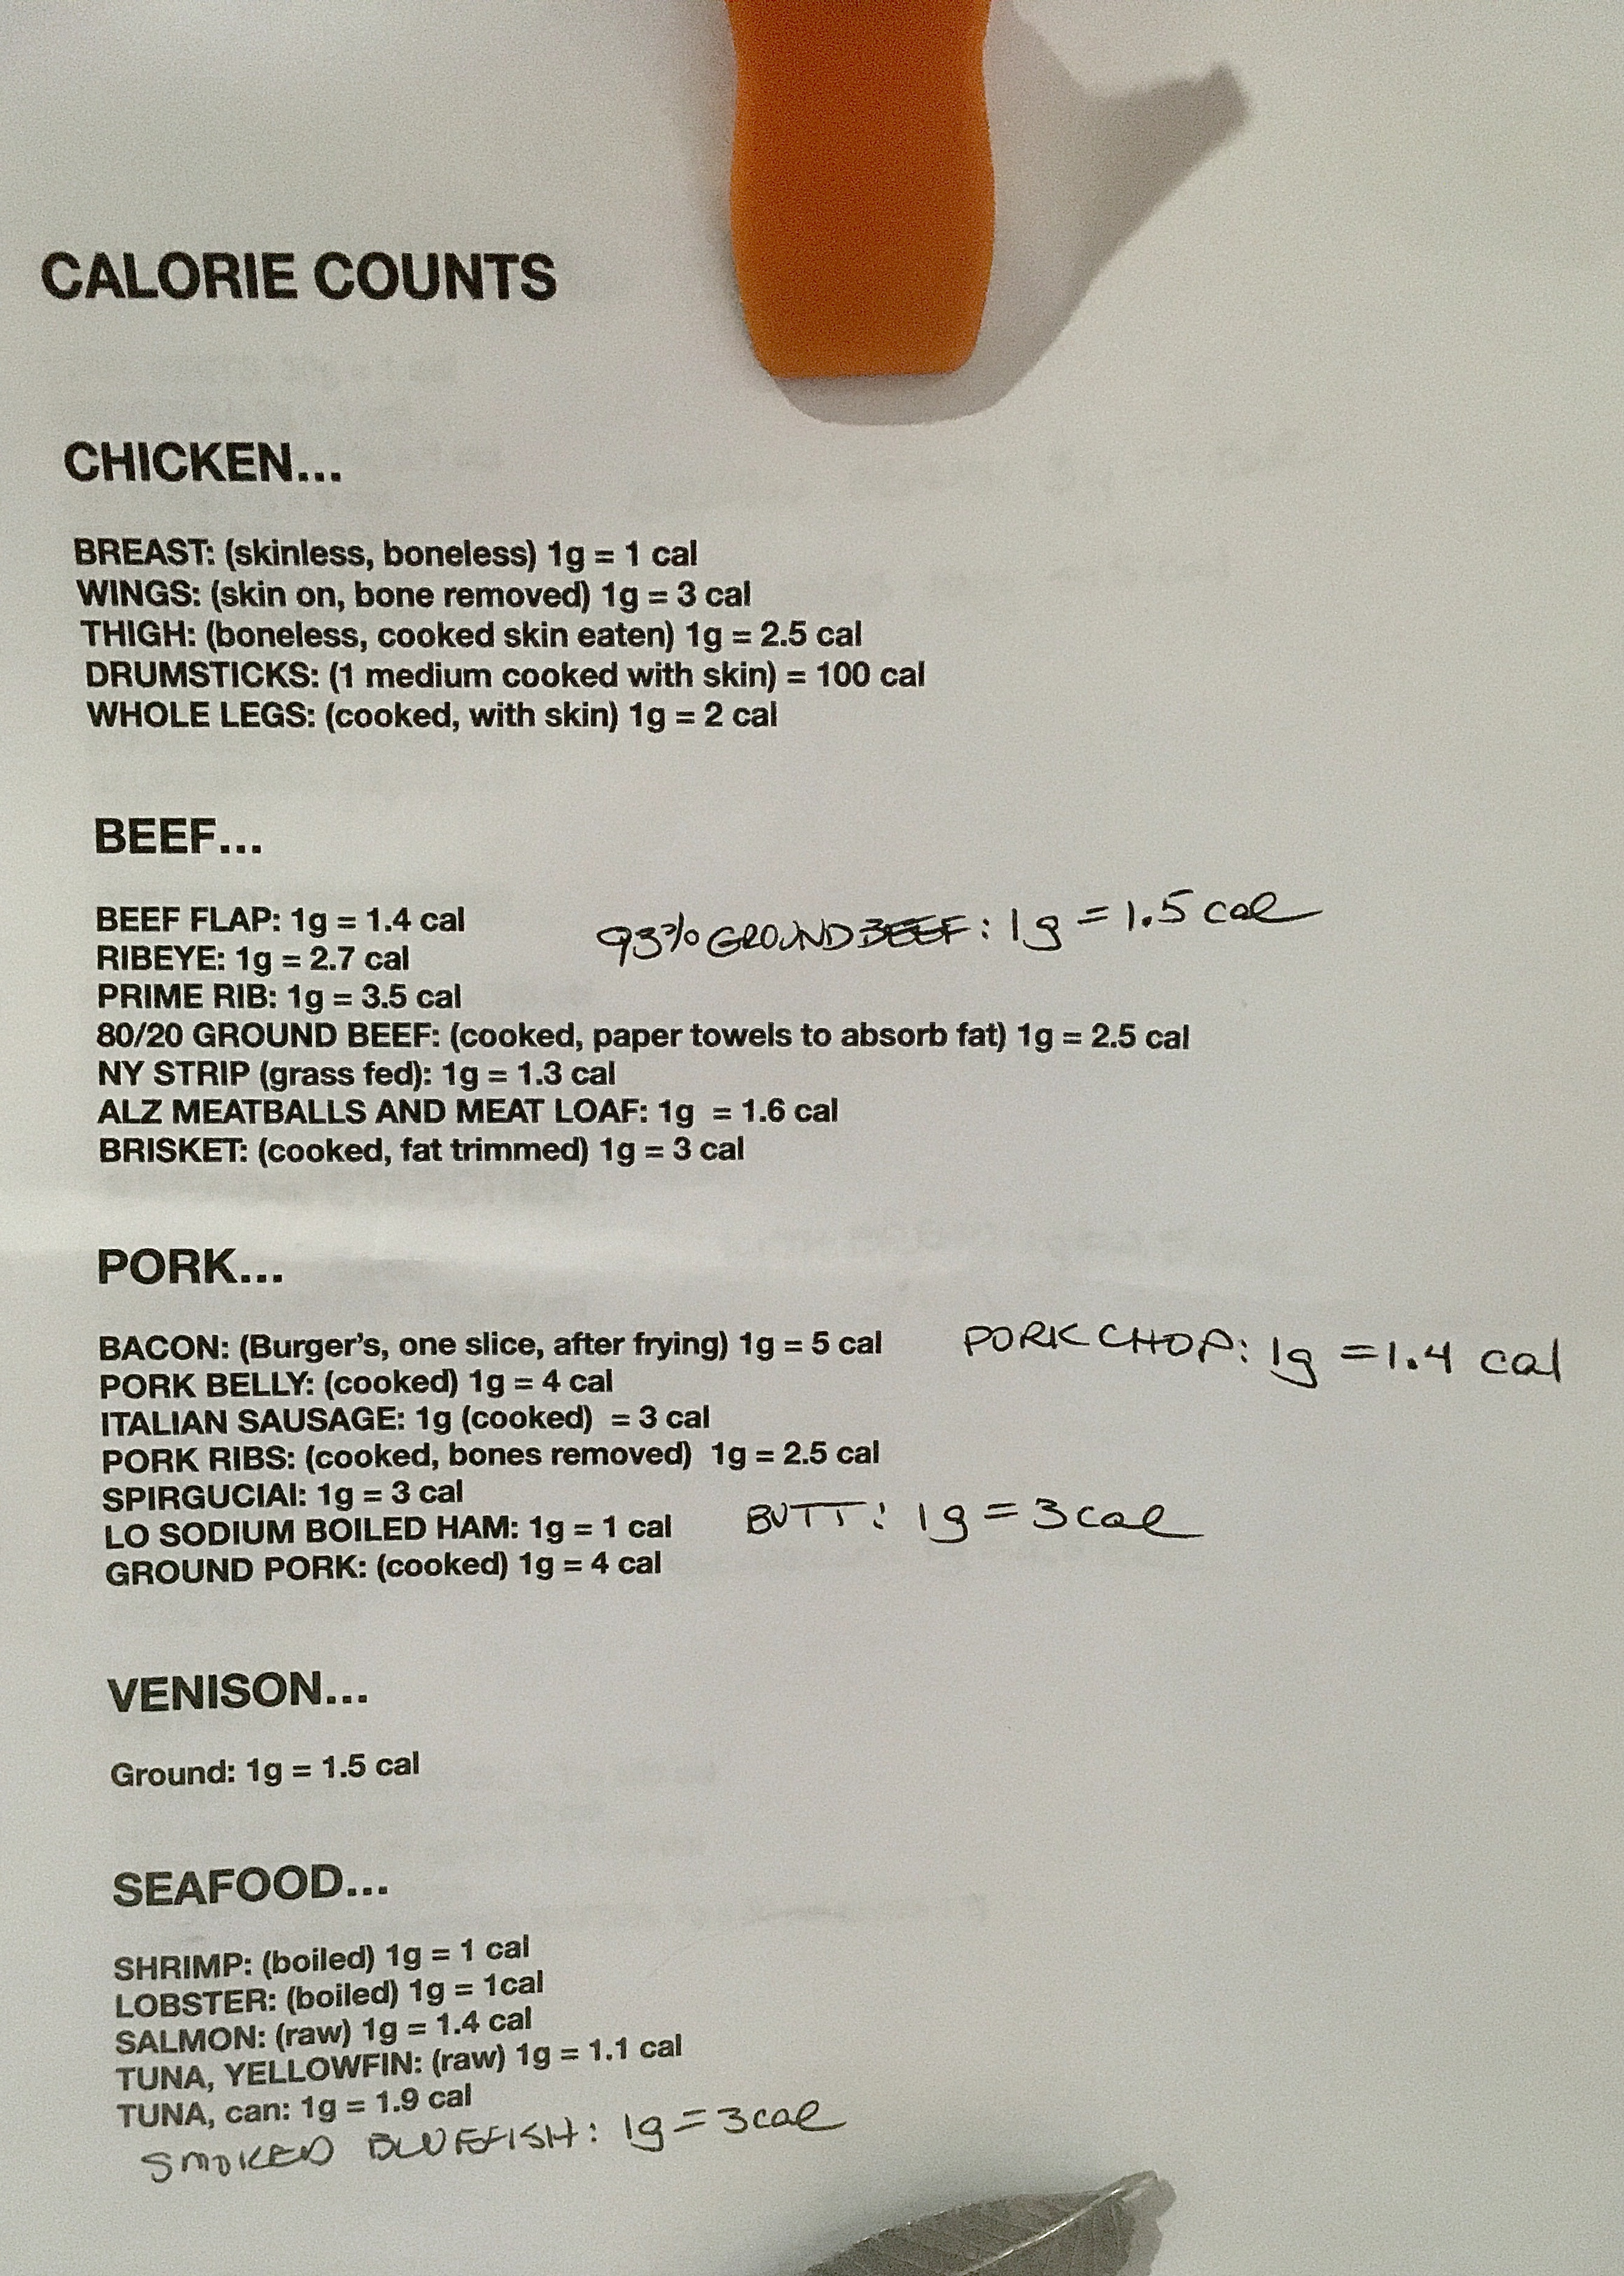 CALORIE COUNTS
CHICKEN...
BREAST: (skinless, boneless) 1g = 1 cal
WINGS: (skin on, bone removed) 1g = 3 cal
THIGH: (boneless, cooked skin eaten) 1g = 2.5 cal
DRUMSTICKS: (1 medium cooked with skin) = 100 cal
WHOLE LEGS: (cooked, with skin) 1g = 2 cal
BEEF...
BEEF FLAP: 1g = 1.4 cal
93% GROUND BEEF: 1g = 1.5 cal
RIBEYE: 1g = 2.7 cal
PRIME RIB: 1g = 3.5 cal
80/20 GROUND BEEF: (cooked, paper towels to absorb fat) 1g = 2.5 cal
NY STRIP (grass fed): 1g = 1.3 cal
ALZ MEATBALLS AND MEAT LOAF: 1g = 1.6 cal
BRISKET: (cooked, fat trimmed) 1g = 3 cal
PORK...
BACON: (Burger's, one slice, after frying) 1g = 5 cal
PORK CHOP: 1g = 1.4 cal
PORK BELLY: (cooked) 1g = 4 cal
ITALIAN SAUSAGE: 1g (cooked) = 3 cal
PORK RIBS: (cooked, bones removed) 1g = 2.5 cal
SPIRGUCIAI: 1g = 3 cal
LO SODIUM BOILED HAM: 1g = 1 cal
BUTT: 1g = 3 cal
GROUND PORK: (cooked) 1g = 4 cal
VENISON...
Ground: 1g = 1.5 cal
SEAFOOD...
SHRIMP: (boiled) 1g = 1 cal
LOBSTER: (boiled) 1g = 1cal
SALMON: (raw) 1g = 1.4 cal
TUNA, YELLOWFIN: (raw) 1g = 1.1 cal
TUNA, can: 1g = 1.9 cal
SMOKED BLUEFISH: 1g = 3 cal